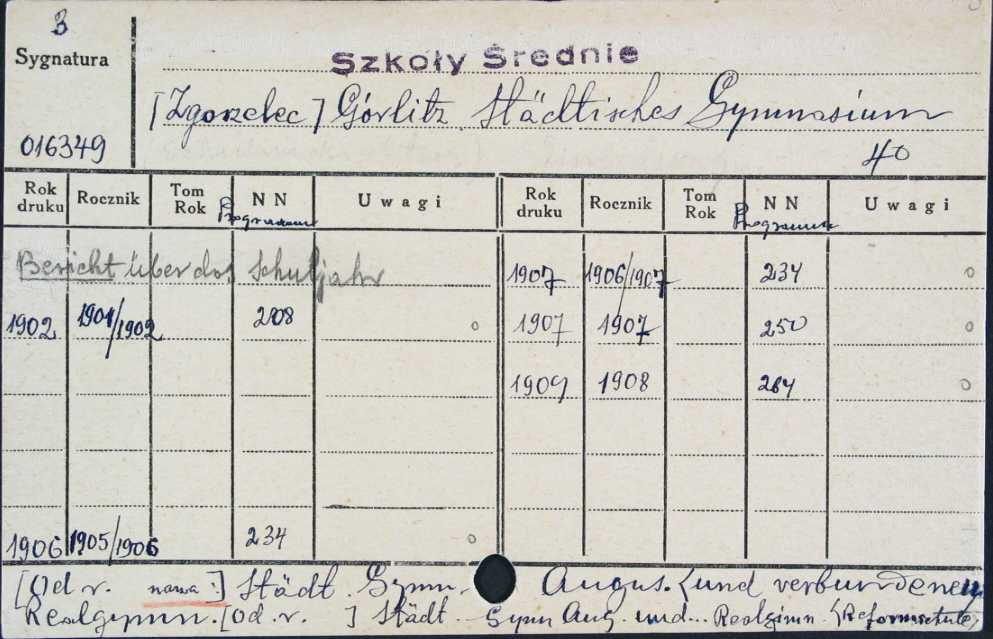 3
Sygnatura
Szkoły Średnie
[Zgorzelec] Görlitz Städtisches Gymnasium
016349
40
Rok druku Rocznik Tom Rok NN Programm Uwagi Rok druku Rocznik Tom Rok NN Programm Uwagi
Bericht über das Schuljahr 1907 1906/1907 234 o
1902 1901/1902 208 o 1907 1907 250 o
1909 1908 264 o
1906 1905/1906 234 o
[Od r. nazwa:] Städt. Gymn. Augus. (und verbundenen
Realgymn. [Od. r. ] Städt. Gymn Aug. und... Realgimn. (Reformschule)